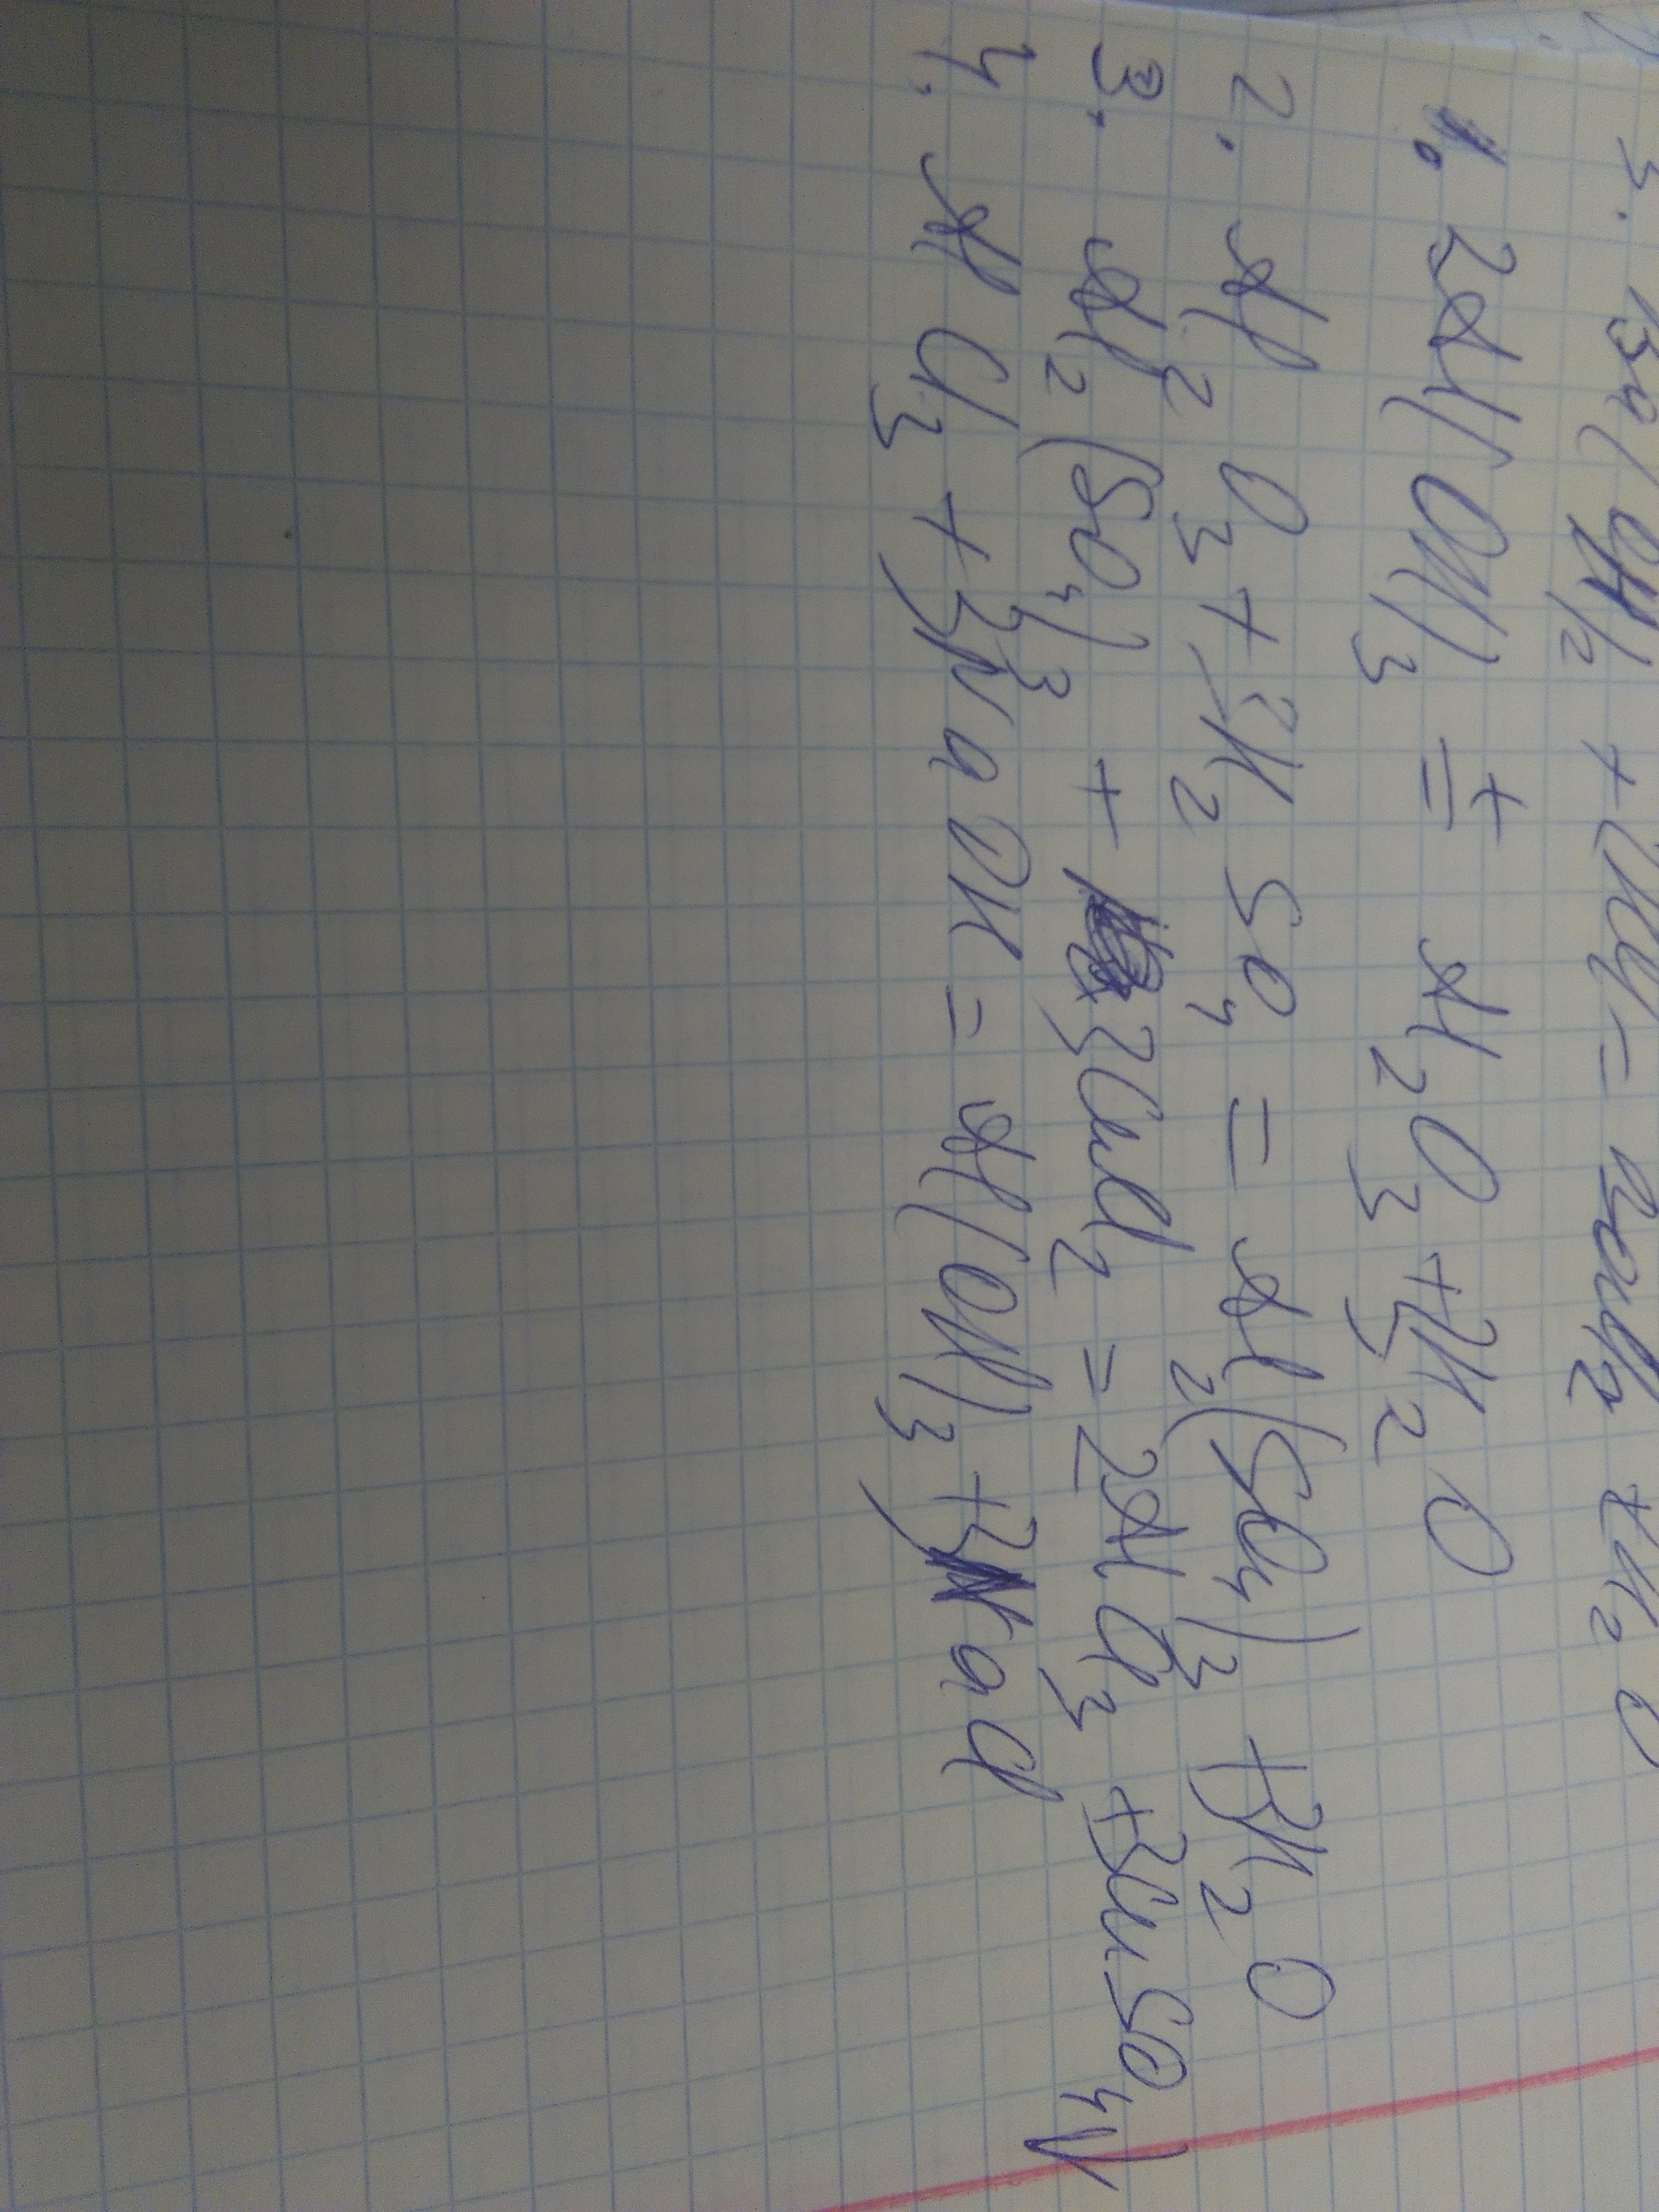 3. Ba(OH)₂ + 2HCl = BaCl₂ + H₂O
1. 2Al(OH)₃ =ᵗ Al₂O₃ + 3H₂O
2. Al₂O₃ + 3H₂SO₄ = Al₂(SO₄)₃ + 3H₂O
3. Al₂(SO₄)₃ + 3CuCl₂ = 2AlCl₃ + 3CuSO₄↓
4. AlCl₃ + 3NaOH = Al(OH)₃ + 3NaCl